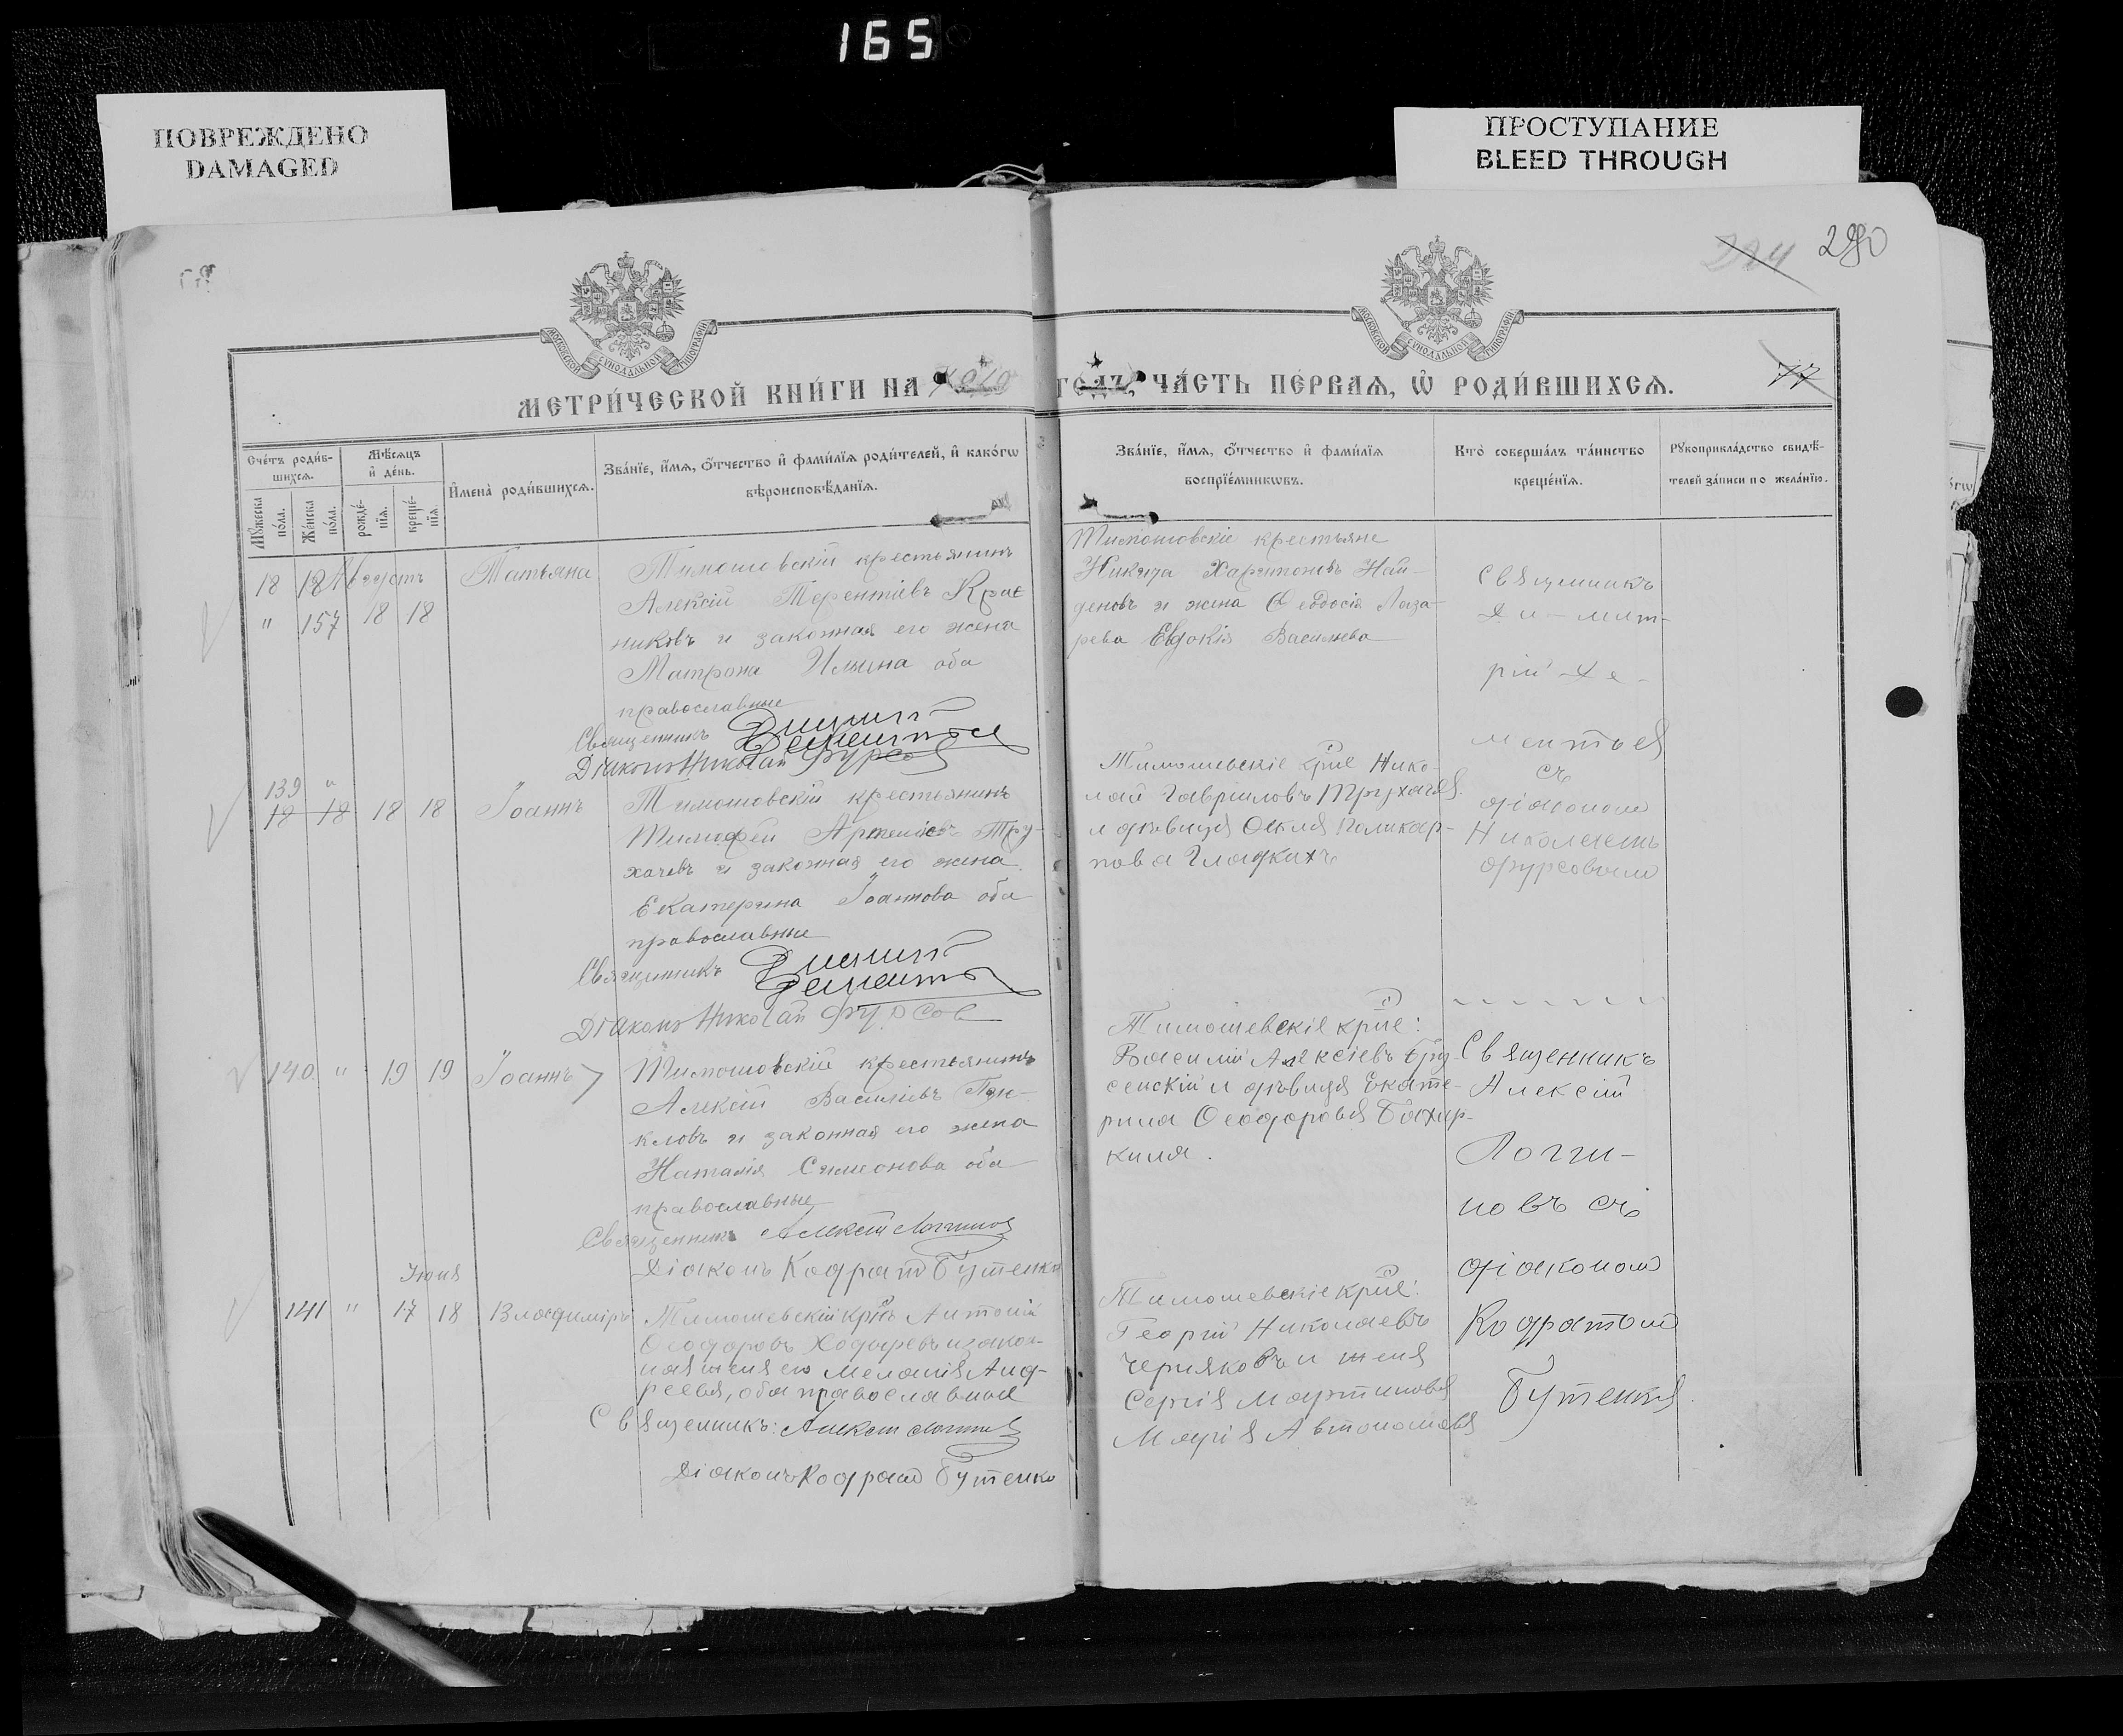 165
ПОВРЕЖДЕНО
DAMAGED
ПРОСТУПАНИЕ
BLEED THROUGH
224 280
МОСКОВСКОЙ СѴНОДАЛЬНОЙ ТИПОГРАФІИ
МОСКОВСКОЙ СѴНОДАЛЬНОЙ ТИПОГРАФІИ
МЕТРИ́ЧЕСКОЙ КНИ́ГИ НА
ГОДЪ, ЧА́СТЬ ПЕ́РВАЯ, Ѽ РОДИ́ВШИХСЯ.
77
Сче́тъ роди́в-
шихся.
Мѣ́сяцъ
и҆ де́нь.
Мꙋ́жеска
по́ла.
Же́нска
по́ла.
рожде́-
нїя.
креще́-
нїя.
И҆мена̀ роди́вшихся.
Зва́нїе, и҆́мя, ѻ҆́тчество и҆ фами́лїя роди́телей, и҆ како́гѡ
вѣроисповѣ́данїя.
Зва́нїе, и҆́мя, ѻ҆́тчество и҆ фами́лїя
воспрїе́мникѡвъ.
Кто̀ соверша́лъ та́инство
креще́нїя.
Рꙋкоприкла́дство свидѣ́-
телей за́писи по жела́нїю.
18 18 Августъ Татьяна
" 157 18 18
Тимошовскій крестьянинъ
Алексій Терентіевъ
никовъ и законная его жена
Матрона Ильина оба
православные
Священникъ Димитрій
Дементьев
Діаконъ Николай Фурсов
Тимошовскіе крестьяне
Никита Харитоновъ Най-
деновъ и жена Ѳеодосія Лаза-
рева Евдокія Васильева
Священникъ
Ди-мит-
рій Де-
ментьев
съ
діакономъ
Николаемъ
Фурсовымъ
139 "
18 18 18 18 Іоаннъ
Тимошовскій крестьянинъ
Тимофей Артеміевъ Тру-
хачевъ и законная его жена
Екатерина Іоаннова оба
православные
Священникъ Димитрій
Дементьев
Діаконъ Николай Фурсов
Тимошевскіе крне Нико-
лай Гавриловъ Трухачев
и дѣвица Поликар-
пова Гладкихъ
140 " 19 19 Іоаннъ
Тимошовскій крестьянинъ
Алексій Василіевъ
кловъ и законная его жена
Наталія Симеонова оба
православные
Священникъ Алексій Логгинов
Діаконъ Кодрат Бутенко
Тимошевскіе крне:
Василій Алексіевъ Бру-
сенскій и дѣвица Екате-
рина Ѳеодорова Бахир-
кина.
Священникъ
Алексій
Логги-
новъ съ
діакономъ
Кодратомъ
Бутенка
Іюня
141 " 17 18 Владиміръ
Тимошевскій крнъ Антоній
Ѳеодоровъ Ходыревъ и закон-
ная жена его Меланія Анд-
реева, оба православные
Священникъ: Алексій Логгинов
Діаконъ Кодрат Бутенко
Тимошевскіе крне:
Георгій Николаевъ
Черняковъ и жена
Сергія Мартинова
Марія Автономова